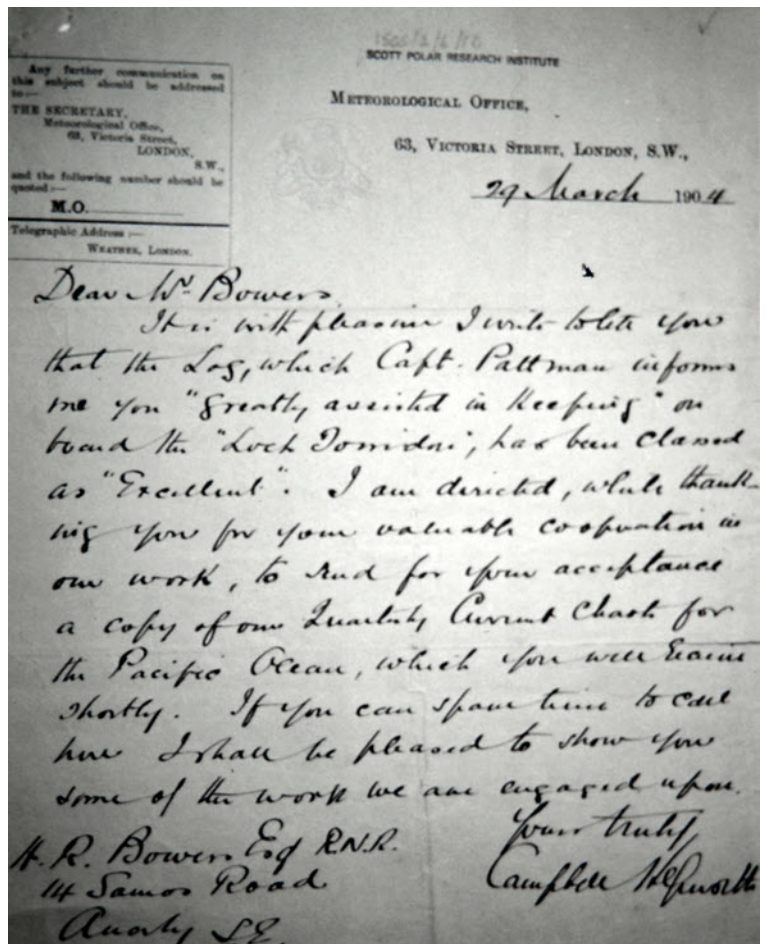 1505/1/2/10
SCOTT POLAR RESEARCH INSTITUTE
Any further communication on
this subject should be addressed
to:—
THE SECRETARY,
Meteorological Office,
63, Victoria Street,
LONDON,
S.W.,
and the following number should be
quoted:—
M.O.
Telegraphic Address:—
WEATHER, LONDON.
METEOROLOGICAL OFFICE,
63, VICTORIA STREET, LONDON, S.W.,
29 March 1904
Dear Mr Bowers
It is with pleasure I write to you
that the Log, which Capt. Pattman informs
me you "greatly assisted in Keeping" on
board the "Loch Torridon", has been classed
as "Excellent". I am directed, while thank-
ing you for your valuable cooperation in
our work, to send for your acceptance
a copy of our Quarterly Current Charts for
the Pacific Ocean, which you will receive
shortly. If you can spare time to call
here I shall be pleased to show you
some of the work we are engaged upon.
Yours truly,
Campbell Hepworth
H. R. Bowers Esq R.N.R.
14 Samos Road
Anerly S.E.